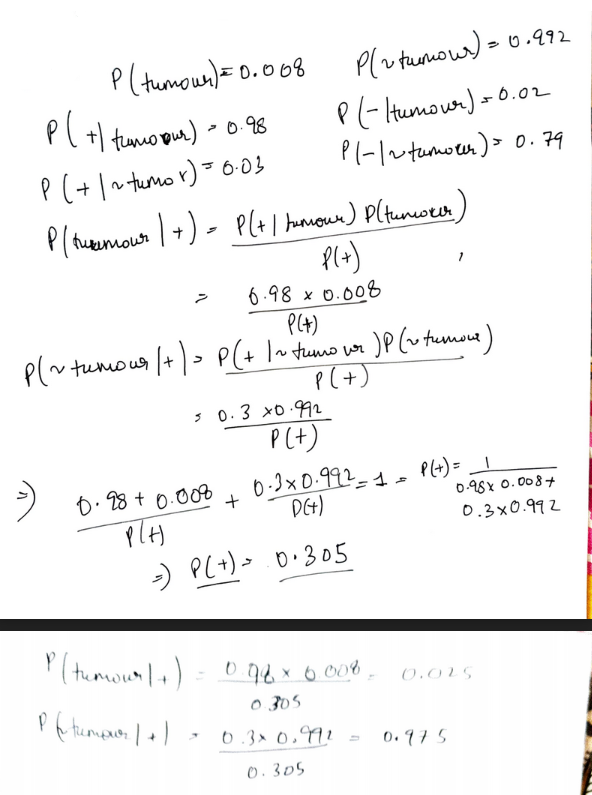 P(tumour)= 0.008 P(~tumour)= 0.992
P(+|tumour)= 0.98 P(-|tumour)= 0.02
P(+|~tumor)= 0.03 P(-|~tumour)= 0.79
P(tumour|+) = P(+|tumour) P(tumour)
P(+)
= 0.98 x 0.008
P(+)
P(~tumour|+)= P(+|~tumour)P(~tumour)
P(+)
= 0.3 x0.992
P(+)
=) 0.98 + 0.008 + 0.3x0.992 = 1 = P(+)= 1
P(+) P(+) 0.98x 0.008+
0.3x0.992
=) P(+)= 0.305
P(tumour|+) = 0.98 x 0.008 = 0.025
0.305
P(~tumour|+) = 0.3x 0.992 = 0.975
0.305